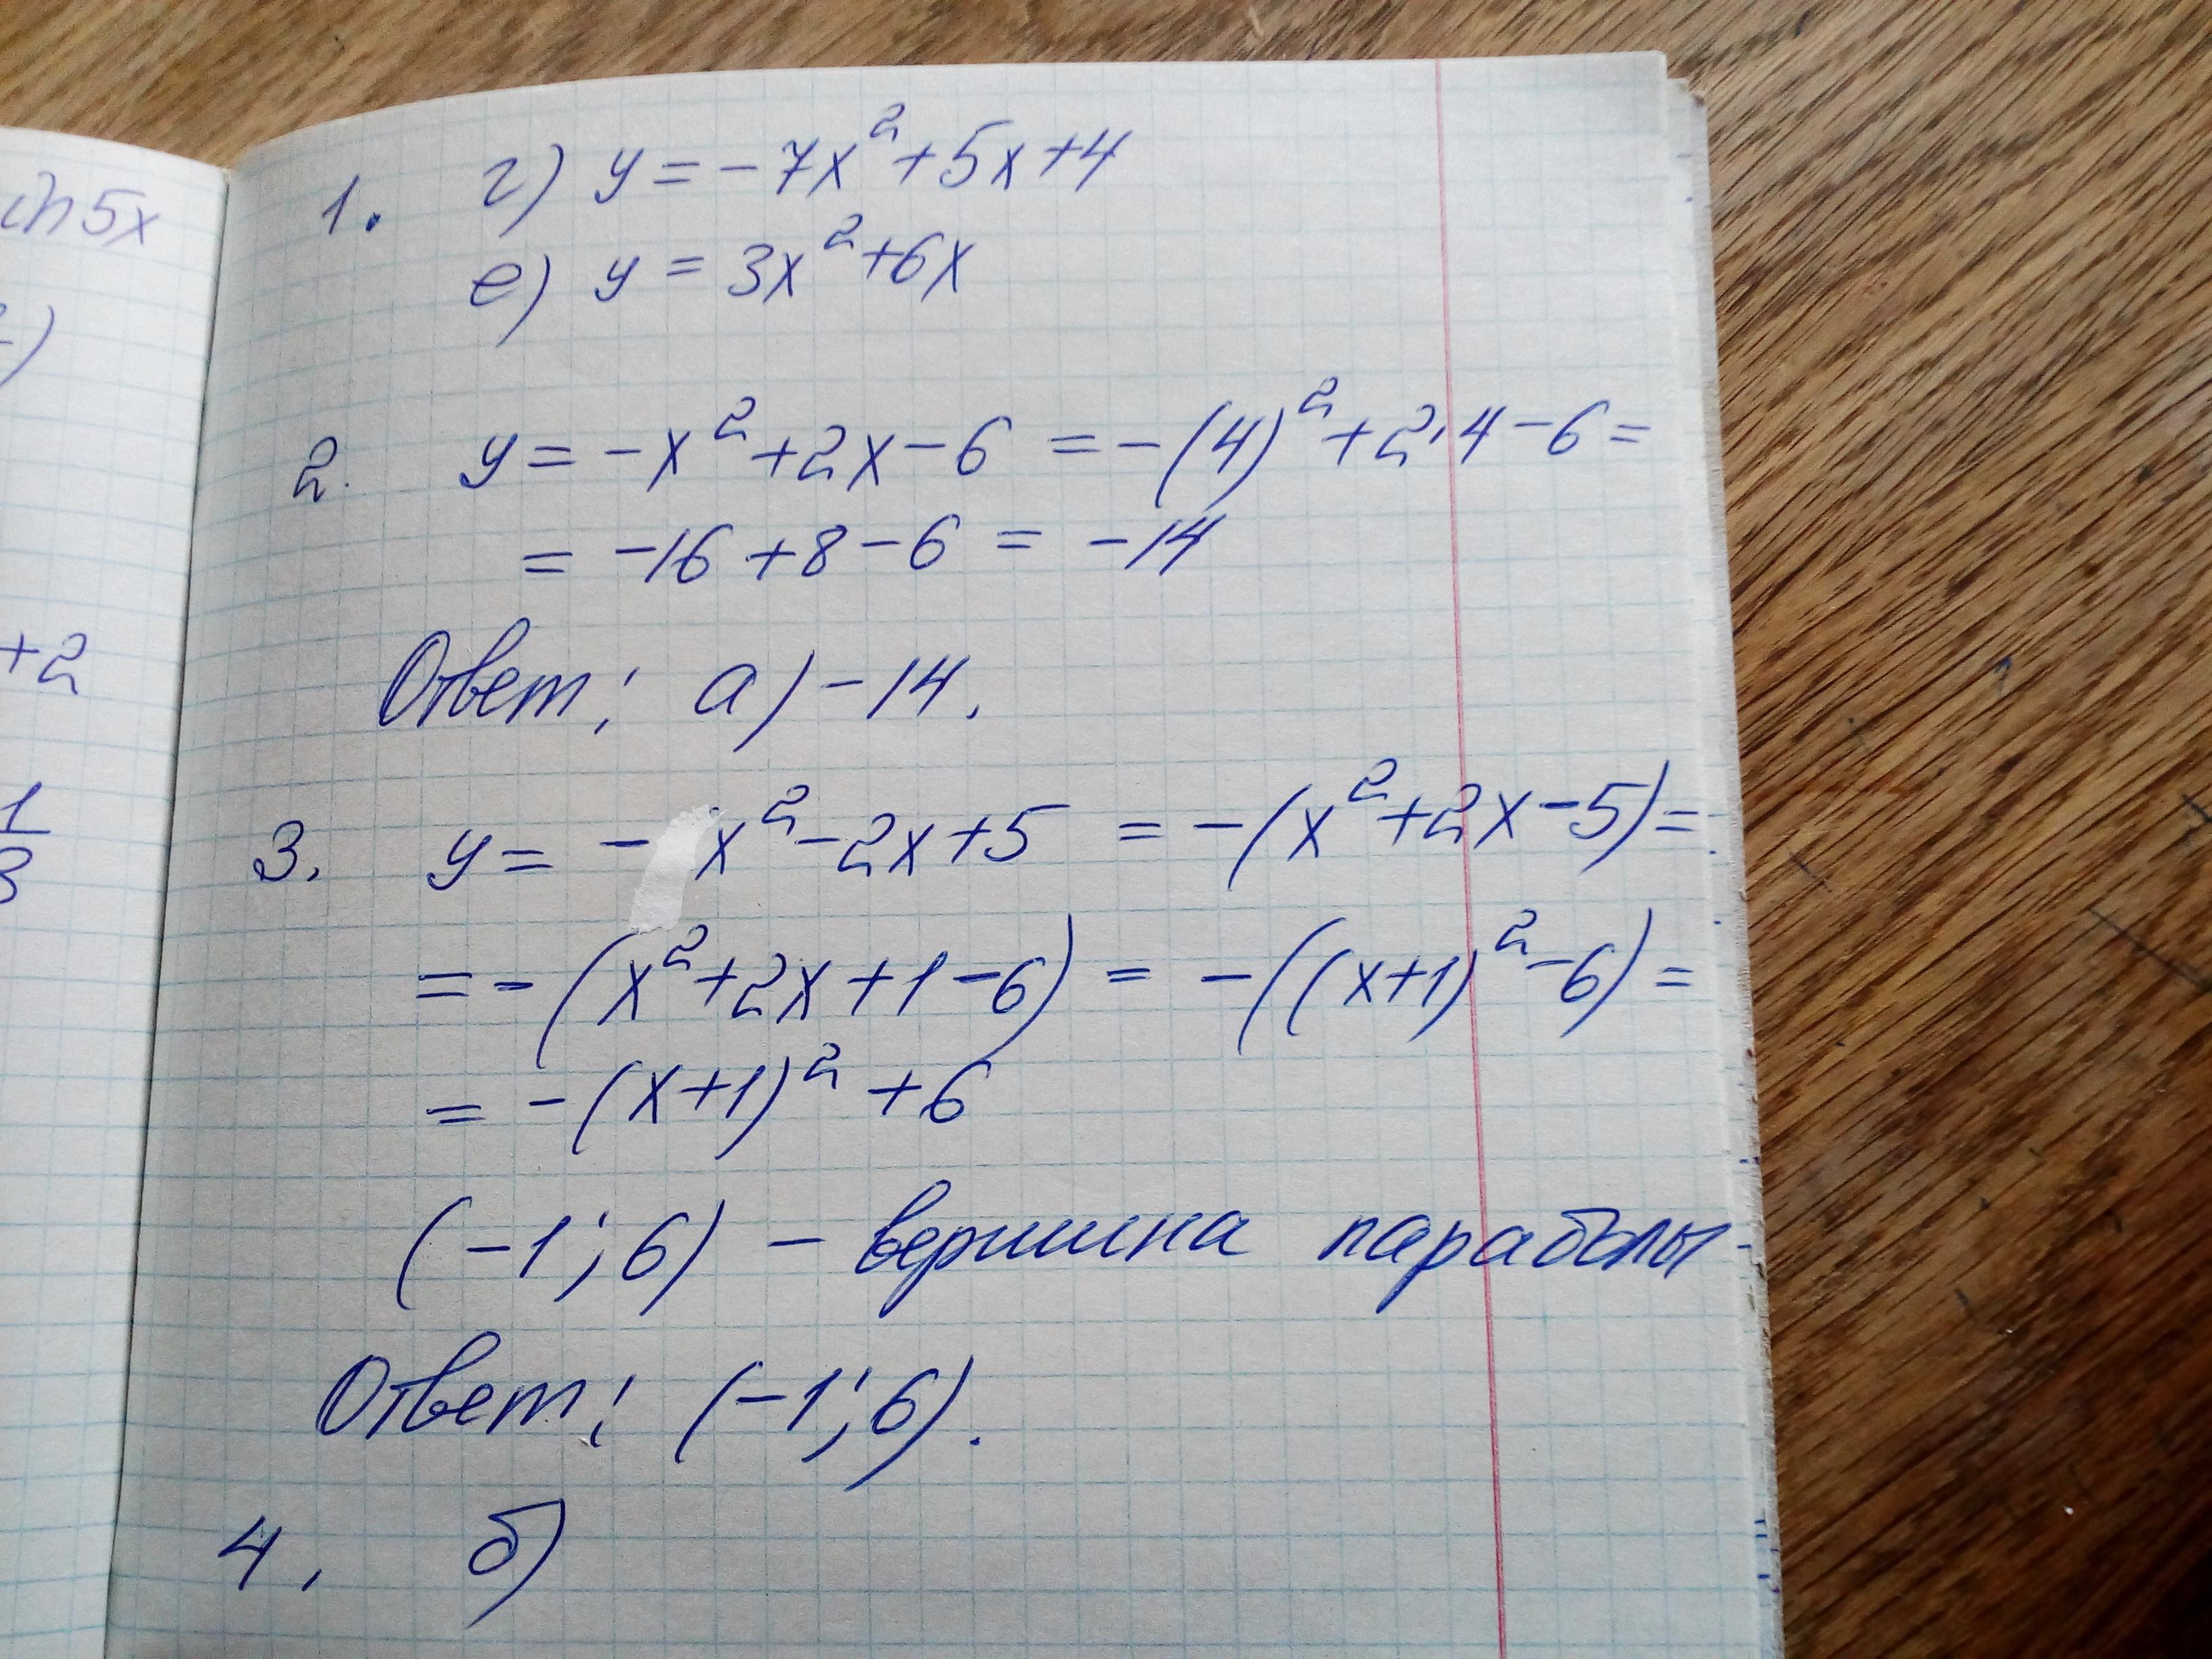 in5x
)
+2
1
3
1. г) y = -7x²+5x+4
е) y = 3x²+6x
2. y = -x²+2x-6 = -(4)²+2·4-6=
= -16+8-6 = -14
Ответ: а) -14.
3. y = - x²-2x+5 = -(x²+2x-5)=
= -(x²+2x+1-6) = -((x+1)²-6)=
= -(x+1)²+6
(-1; 6) - вершина параболы
Ответ: (-1; 6).
4. б)